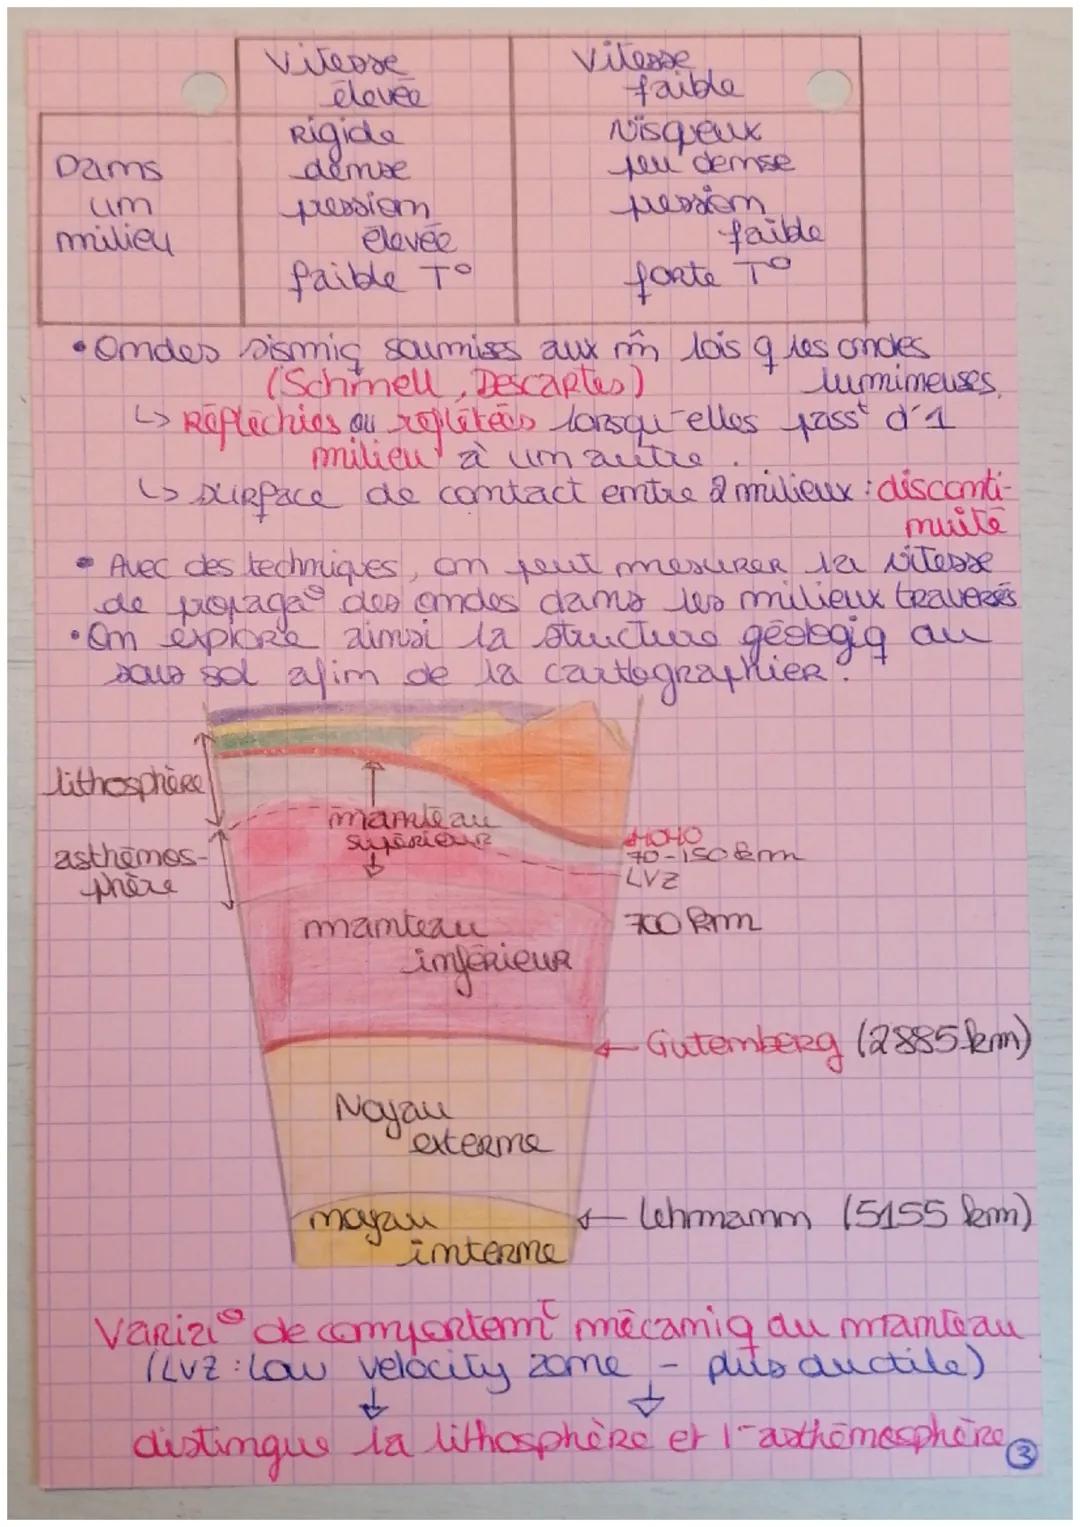 Vitesse élevée
Vitesse faible
Dans un milieu
Rigide
dense
pression élevée
faible T°
Visqeux
peu dense
pression faible
forte T°
• Ondes sismiq soumises aux m̂ lois q les ondes lumineuses.
(Schnell, Descartes)
↳ Réfléchies ou reflétées lorsqu'elles passt d'1
milieu à un autre.
↳ surface de contact entre 2 milieux : disconti-
nuité
• Avec des techniques, on peut mesurer la vitesse
de propaga° des ondes dans les milieux traversés
• On explore ainsi la structure géologiq au
sous sol afin de la cartographier.
lithosphère
manteau
supérieur
MOHO
70-150 km
LVZ
asthénos-
phère
manteau
inférieur
700 km
Gutemberg (2885 km)
Noyau
externe
noyau
interne
Lehmann (5155 km)
Variai° de comportemt mécaniq du manteau
(LVZ : Low velocity zone - plus ductile)
distingue la lithosphère et l'asthénosphère
3